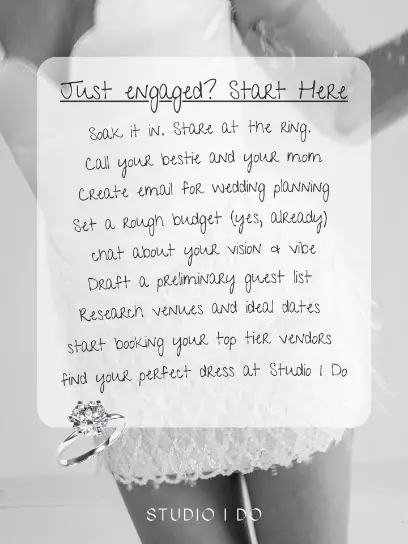 Just engaged? Start Here
Soak it in. Stare at the ring.
Call your bestie and your mom
Create email for wedding planning
Set a rough budget (yes, already)
chat about your vision & vibe
Draft a preliminary guest list
Research venues and ideal dates
start booking your top tier vendors
find your perfect dress at Studio I Do
STUDIO I DO